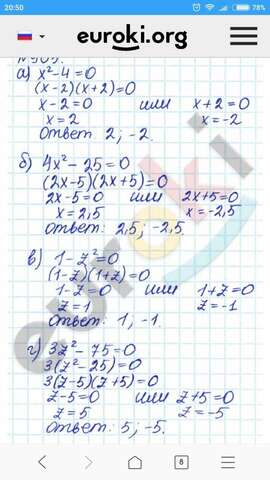 20:50
78%
euroki.org
а) x²-4=0
(x-2)(x+2)=0
x-2=0 или x+2=0
x=2 x=-2
Ответ: 2; -2.
б) 4x²-25=0
(2x-5)(2x+5)=0
2x-5=0 или 2x+5=0
x=2,5 x=-2,5
Ответ: 2,5; -2,5.
в) 1-z²=0
(1-z)(1+z)=0
1-z=0 или 1+z=0
z=1 z=-1
Ответ: 1; -1.
г) 3z²-75=0
3(z²-25)=0
3(z-5)(z+5)=0
z-5=0 или z+5=0
z=5 z=-5
Ответ: 5; -5.
8